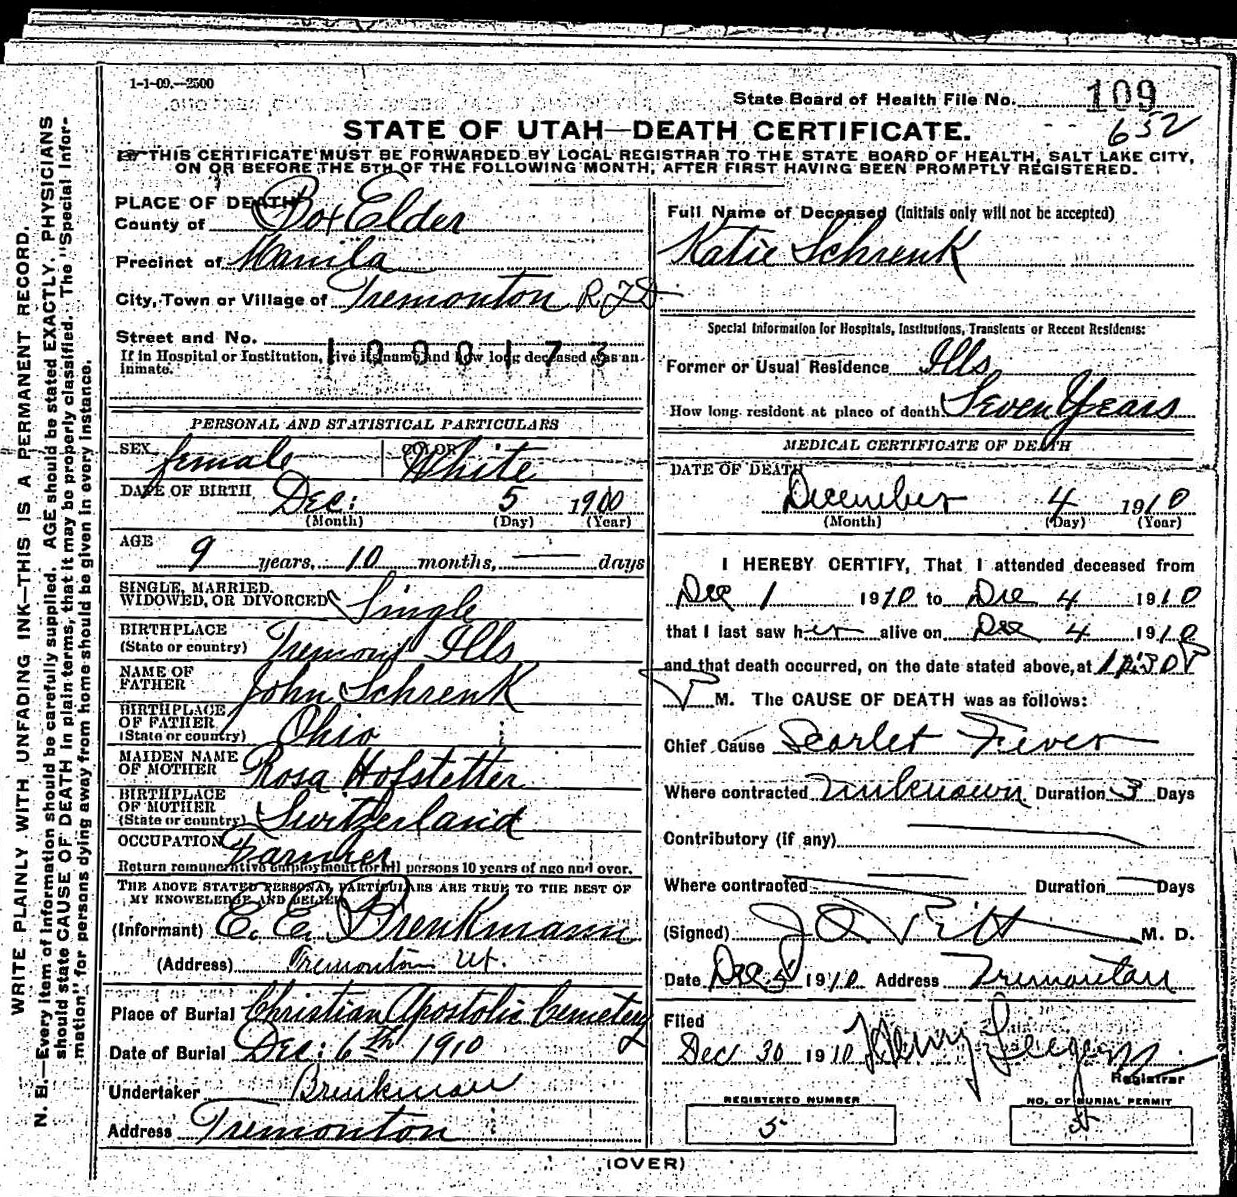 1-1-09.—2500
State Board of Health File No. 109
652
STATE OF UTAH—DEATH CERTIFICATE.
THIS CERTIFICATE MUST BE FORWARDED BY LOCAL REGISTRAR TO THE STATE BOARD OF HEALTH, SALT LAKE CITY,
ON OR BEFORE THE 5TH OF THE FOLLOWING MONTH, AFTER FIRST HAVING BEEN PROMPTLY REGISTERED.
WRITE PLAINLY WITH UNFADING INK—THIS IS A PERMANENT RECORD.
N. B.—Every item of information should be carefully supplied. AGE should be stated EXACTLY. PHYSICIANS
should state CAUSE OF DEATH in plain terms, that it may be properly classified. The "Special Infor-
mation" for persons dying away from home should be given in every instance.
PLACE OF DEATH
County of Box Elder
Precinct of Manila
City, Town or Village of Tremonton R.F.D.
Street and No.
1000173
If in Hospital or Institution, give its name and how long deceased was an
inmate.
PERSONAL AND STATISTICAL PARTICULARS
SEX female COLOR White
DATE OF BIRTH Dec: 5 1900
(Month) (Day) (Year)
AGE
9 years, 10 months, — days
SINGLE, MARRIED,
WIDOWED, OR DIVORCED Single
BIRTHPLACE
(State or country) Tremont Ills
NAME OF
FATHER John Schrenk
BIRTHPLACE
OF FATHER
(State or country) Ohio
MAIDEN NAME
OF MOTHER Rosa Hofstetter
BIRTHPLACE
OF MOTHER
(State or country) Switzerland
OCCUPATION Farmer
Return remunerative employment for all persons 10 years of age and over.
THE ABOVE STATED PERSONAL PARTICULARS ARE TRUE TO THE BEST OF
MY KNOWLEDGE AND BELIEF
(Informant) E. E. Brenkmann
(Address) Tremonton Ut.
Place of Burial Christian Apostolic Cemetery
Date of Burial Dec: 6th 1910
Undertaker Brenkman
Address Tremonton
Full Name of Deceased (Initials only will not be accepted)
Katie Schrenk
Special Information for Hospitals, Institutions, Transients or Recent Residents:
Former or Usual Residence Ills
How long resident at place of death Seven Years
MEDICAL CERTIFICATE OF DEATH
DATE OF DEATH
December 4 1910
(Month) (Day) (Year)
I HEREBY CERTIFY, That I attended deceased from
Dec 1 1910 to Dec 4 1910
that I last saw her alive on Dec 4 1910
and that death occurred, on the date stated above, at
M. The CAUSE OF DEATH was as follows:
Chief Cause Scarlet Fever
Where contracted Unknown Duration 3 Days
Contributory (if any)
Where contracted Duration Days
(Signed) M. D.
Date Dec 5 1910 Address Tremonton
Filed
Dec 30 1910 Henry
Registrar
REGISTERED NUMBER
5
NO. OF BURIAL PERMIT
(OVER)